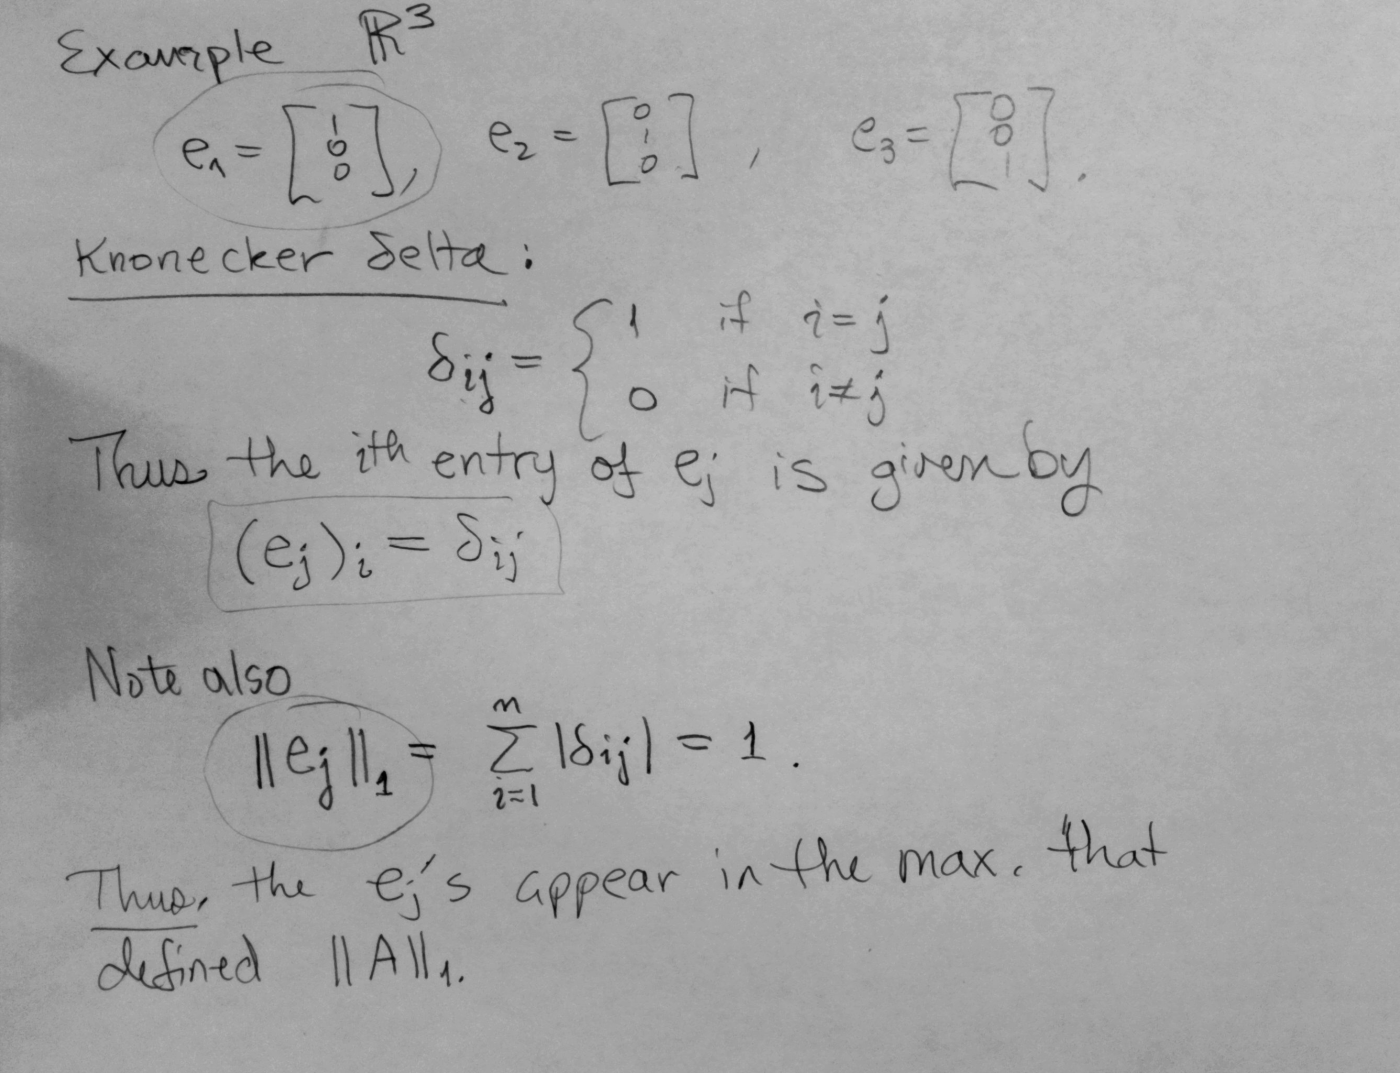 Example ℝ³
e₁ = [1 0 0], e₂ = [0 1 0], e₃ = [0 0 1].
Knonecker delta:
δij = { 1 if i = j
0 if i ≠ j
Thus the ith entry of ej is given by
(ej)i = δij
Note also
||ej||₁ = Σ_{i=1}^{n} |δij| = 1.
Thus, the ej's appear in the max. that
defined ||A||₁.